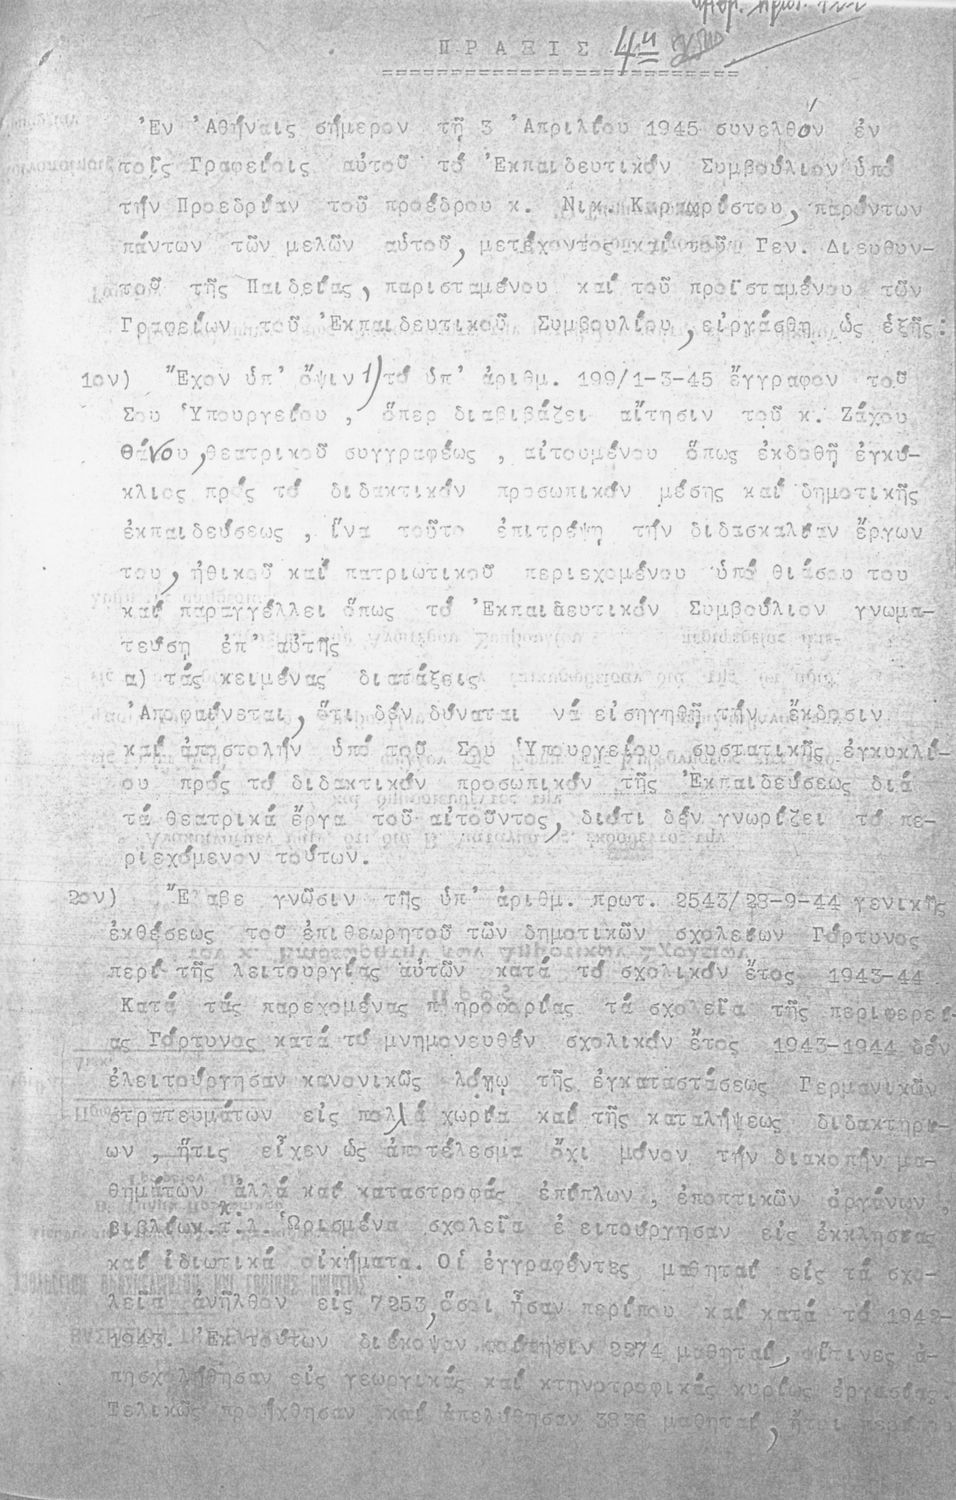 ΠΡΑΞΙΣ 4η
Ἐν Ἀθήναις σήμερον τῇ 3 Ἀπριλίου 1945 συνελθόν ἐν
τοῖς Γραφείοις αὐτοῦ τό Ἐκπαιδευτικόν Συμβούλιον ὑπό
τήν Προεδρίαν τοῦ προέδρου κ. Νικ. Καραχρίστου, παρόντων
πάντων τῶν μελῶν αὐτοῦ, μετέχοντος καί τοῦ Γεν. Διευθυν-
τοῦ τῆς Παιδείας, παρισταμένου καί τοῦ προϊσταμένου τῶν
Γραφείων τοῦ Ἐκπαιδευτικοῦ Συμβουλίου, εἰργάσθη ὡς ἑξῆς:
1ον) Ἔχον ὑπ' ὄψιν 1) τό ὑπ' ἀριθμ. 199/1-3-45 ἔγγραφον τοῦ
Σου Ὑπουργείου, ὅπερ διαβιβάζει αἴτησιν τοῦ κ. Ζάχου
Θάνου, θεατρικοῦ συγγραφέως, αἰτουμένου ὅπως ἐκδοθῇ ἐγκύ-
κλιος πρός τό διδακτικόν προσωπικόν μέσης καί δημοτικῆς
ἐκπαιδεύσεως, ἵνα τοῦτο ἐπιτρέψῃ τήν διδασκαλίαν ἔργων
του, ἠθικοῦ καί πατριωτικοῦ περιεχομένου ὑπό θιάσου του
καί παραγγέλλει ὅπως τό Ἐκπαιδευτικόν Συμβούλιον γνωμα-
τεύσῃ ἐπ' αὐτῆς
α) τάς κειμένας διατάξεις
Ἀποφαίνεται, ὅτι δέν δύναται νά εἰσηγηθῇ τήν ἔκδοσιν
καί ἀποστολήν ὑπό τοῦ Σου Ὑπουργείου συστατικῆς ἐγκυκλί-
ου πρός τό διδακτικόν προσωπικόν τῆς Ἐκπαιδεύσεως διά
τά θεατρικά ἔργα τοῦ αἰτοῦντος, διότι δέν γνωρίζει τό πε-
ριεχόμενον τούτων.
2ον) Ἔλαβε γνῶσιν τῆς ὑπ' ἀριθμ. πρωτ. 2543/28-9-44 γενικῆς
ἐκθέσεως τοῦ ἐπιθεωρητοῦ τῶν δημοτικῶν σχολείων Γόρτυνος
περί τῆς λειτουργίας αὐτῶν κατά τό σχολικόν ἔτος 1943-44
Κατά τάς παρεχομένας πληροφορίας τά σχολεῖα τῆς περιφερεί-
ας Γόρτυνος κατά τό μνημονευθέν σχολικόν ἔτος 1943-1944 δέν
ἐλειτούργησαν κανονικῶς λόγῳ τῆς ἐγκαταστάσεως Γερμανικῶν
στρατευμάτων εἰς πολλά χωρία καί τῆς καταλήψεως διδακτηρί-
ων, ἥτις εἶχεν ὡς ἀποτέλεσμα ὄχι μόνον τήν διακοπήν μα-
θημάτων ἀλλά καί καταστροφάς ἐπίπλων, ἐποπτικῶν ὀργάνων,
βιβλίων κ.τ.λ. Ὡρισμένα σχολεῖα ἐλειτούργησαν εἰς ἐκκλησίας
καί ἰδιωτικά οἰκήματα. Οἱ ἐγγραφέντες μαθηταί εἰς τά σχο-
λεῖα ἀνῆλθον εἰς 7253, ὅσοι ἦσαν περίπου καί κατά τό 1942-
1943. Ἐκ τούτων διέκοψαν φοίτησιν 2274 μαθηταί, οἵτινες ἀ-
πησχολήθησαν εἰς γεωργικάς καί κτηνοτροφικάς κυρίως ἐργασίας.
Τελικῶς προήχθησαν καί ἀπελύθησαν 3836 μαθηταί, ἤτοι